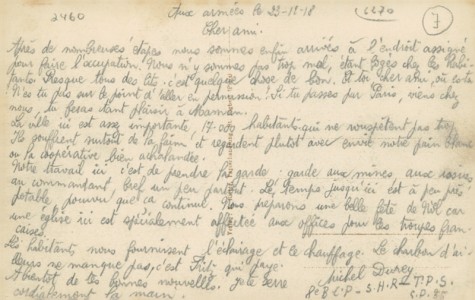 3460
6270
7
Aux armées le 23-12-18
Cher ami.
Après de nombreuses étapes nous sommes enfin arrivés à l'endroit assigné
pour faire l'occupation. Nous n'y sommes pas trop mal, étant logés chez les habi-
tants. Presque tous des lits: c'est quelque chose de bon. Et toi cher ami, où es-tu
N'es-tu pas sur le point d'aller en permission. Si tu passes par Paris, viens chez
nous, tu feras tant plaisir à Maman.
La ville ici est assez importante, 17.000 habitants qui ne rouspètent pas trop
Ils souffrent surtout de la faim et regardent plutôt avec envie notre pain blanc
ou la coopérative bien achalandée.
Notre travail ici c'est de prendre la garde: garde aux mines, aux issues,
au commandant, bref un peu partout. Le temps jusqu'ici est à peu près
potable, pourvu que ça continue. Nous préparons une belle fête de Noël car
une église ici est spécialement affectée aux offices pour les troupes fran-
çaises.
Les habitants nous fournissent l'éclairage et le chauffage. Le charbon d'ai-
lleurs ne manque pas, c'est qui paye.
A bientôt de tes bonnes nouvelles. Je te serre
cordialement la main. Michel
8e B.C.P - S.H.R - T.P.S.
S.P. 85